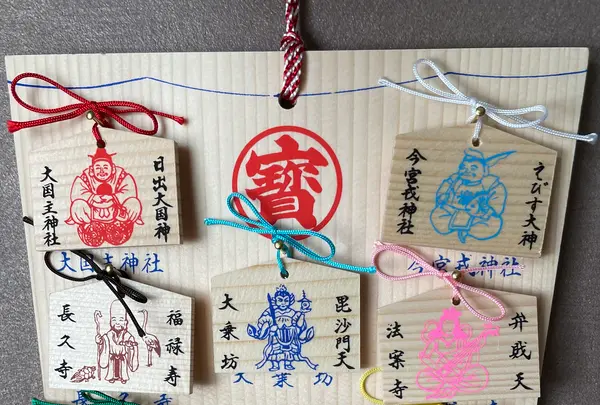 寶
日出大国神
大国主神社
えびす大神
今宮戎神社
大国主神社
今宮戎神社
福禄寿
長久寺
毘沙門天
大乗坊
弁財天
法案寺
大乗坊
長久寺